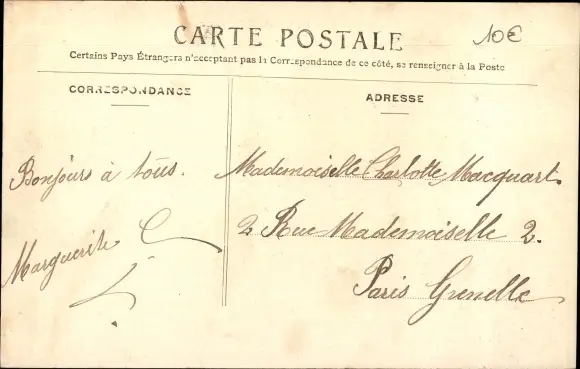 CARTE POSTALE
10€
Certains Pays Étrangers n'acceptant pas la Correspondance de ce côté, se renseigner à la Poste
CORRESPONDANCE
ADRESSE
Bonjours à tous.
Marguerite C
Mademoiselle Charlotte Macquart
2 Rue Mademoiselle 2.
Paris Grenelle